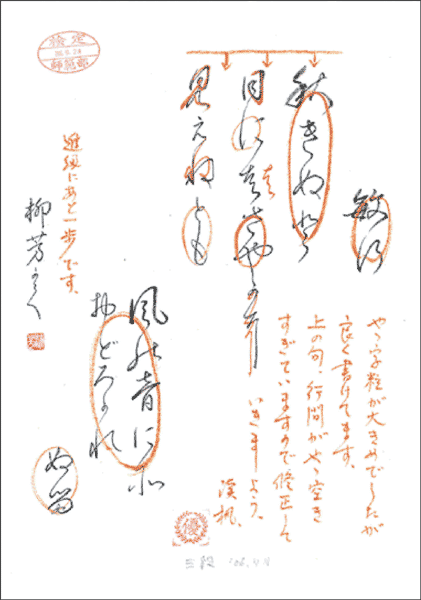 敏行
秋きぬと
目にはさやかに
見えねども
風能音に所
於どろかれ
ぬ留
やゝ字粒が大きめでしたが
良く書けてます。
上の句、行間がやゝ空き
すぎていますので修正して
いきましょう。
進級にあと一歩です。
柳芳かく
検定
師範部
優
三段